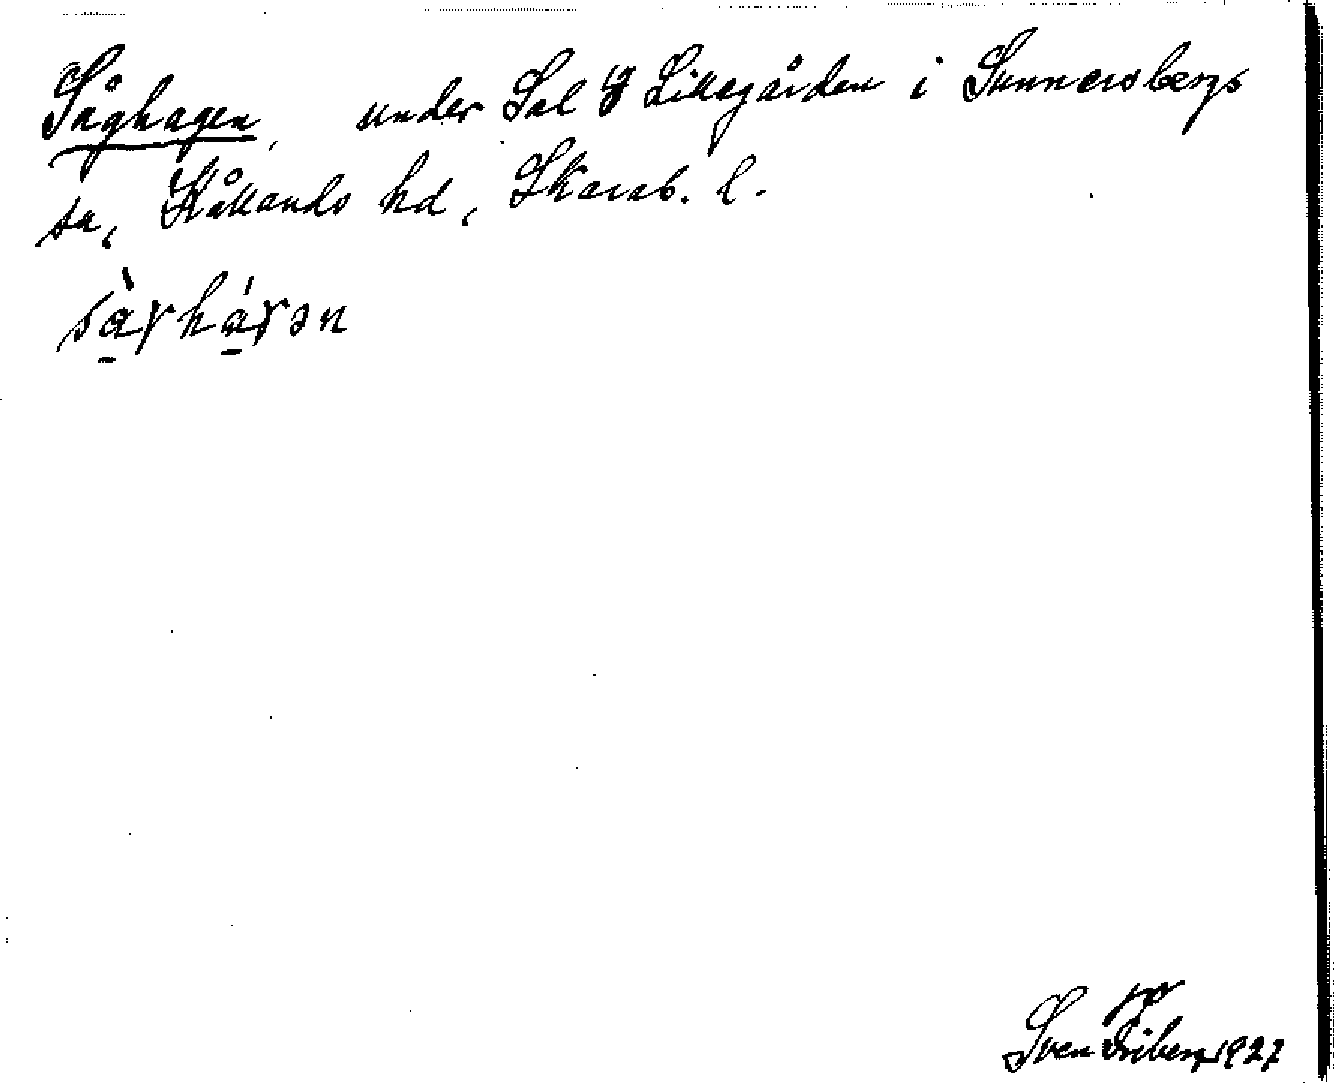 Såghagen, under Sal 8 Lillegården i Sunnersbergs
sn, Kållands hd, Skarab. l.
Sven Friberg 1927